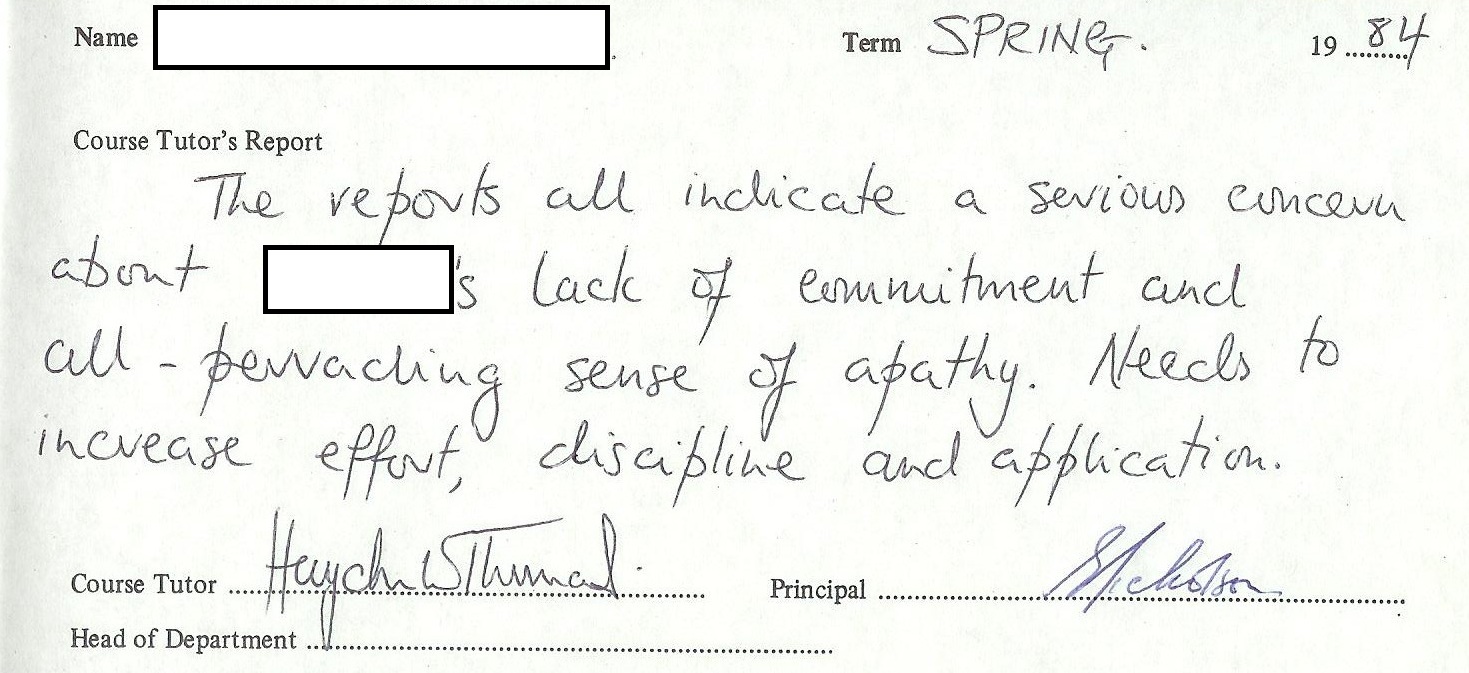 Name Term SPRING. 19 84
Course Tutor's Report
The reports all indicate a serious concern
about 's lack of commitment and
all-pervading sense of apathy. Needs to
increase effort, discipline and application.
Course Tutor Principal
Head of Department